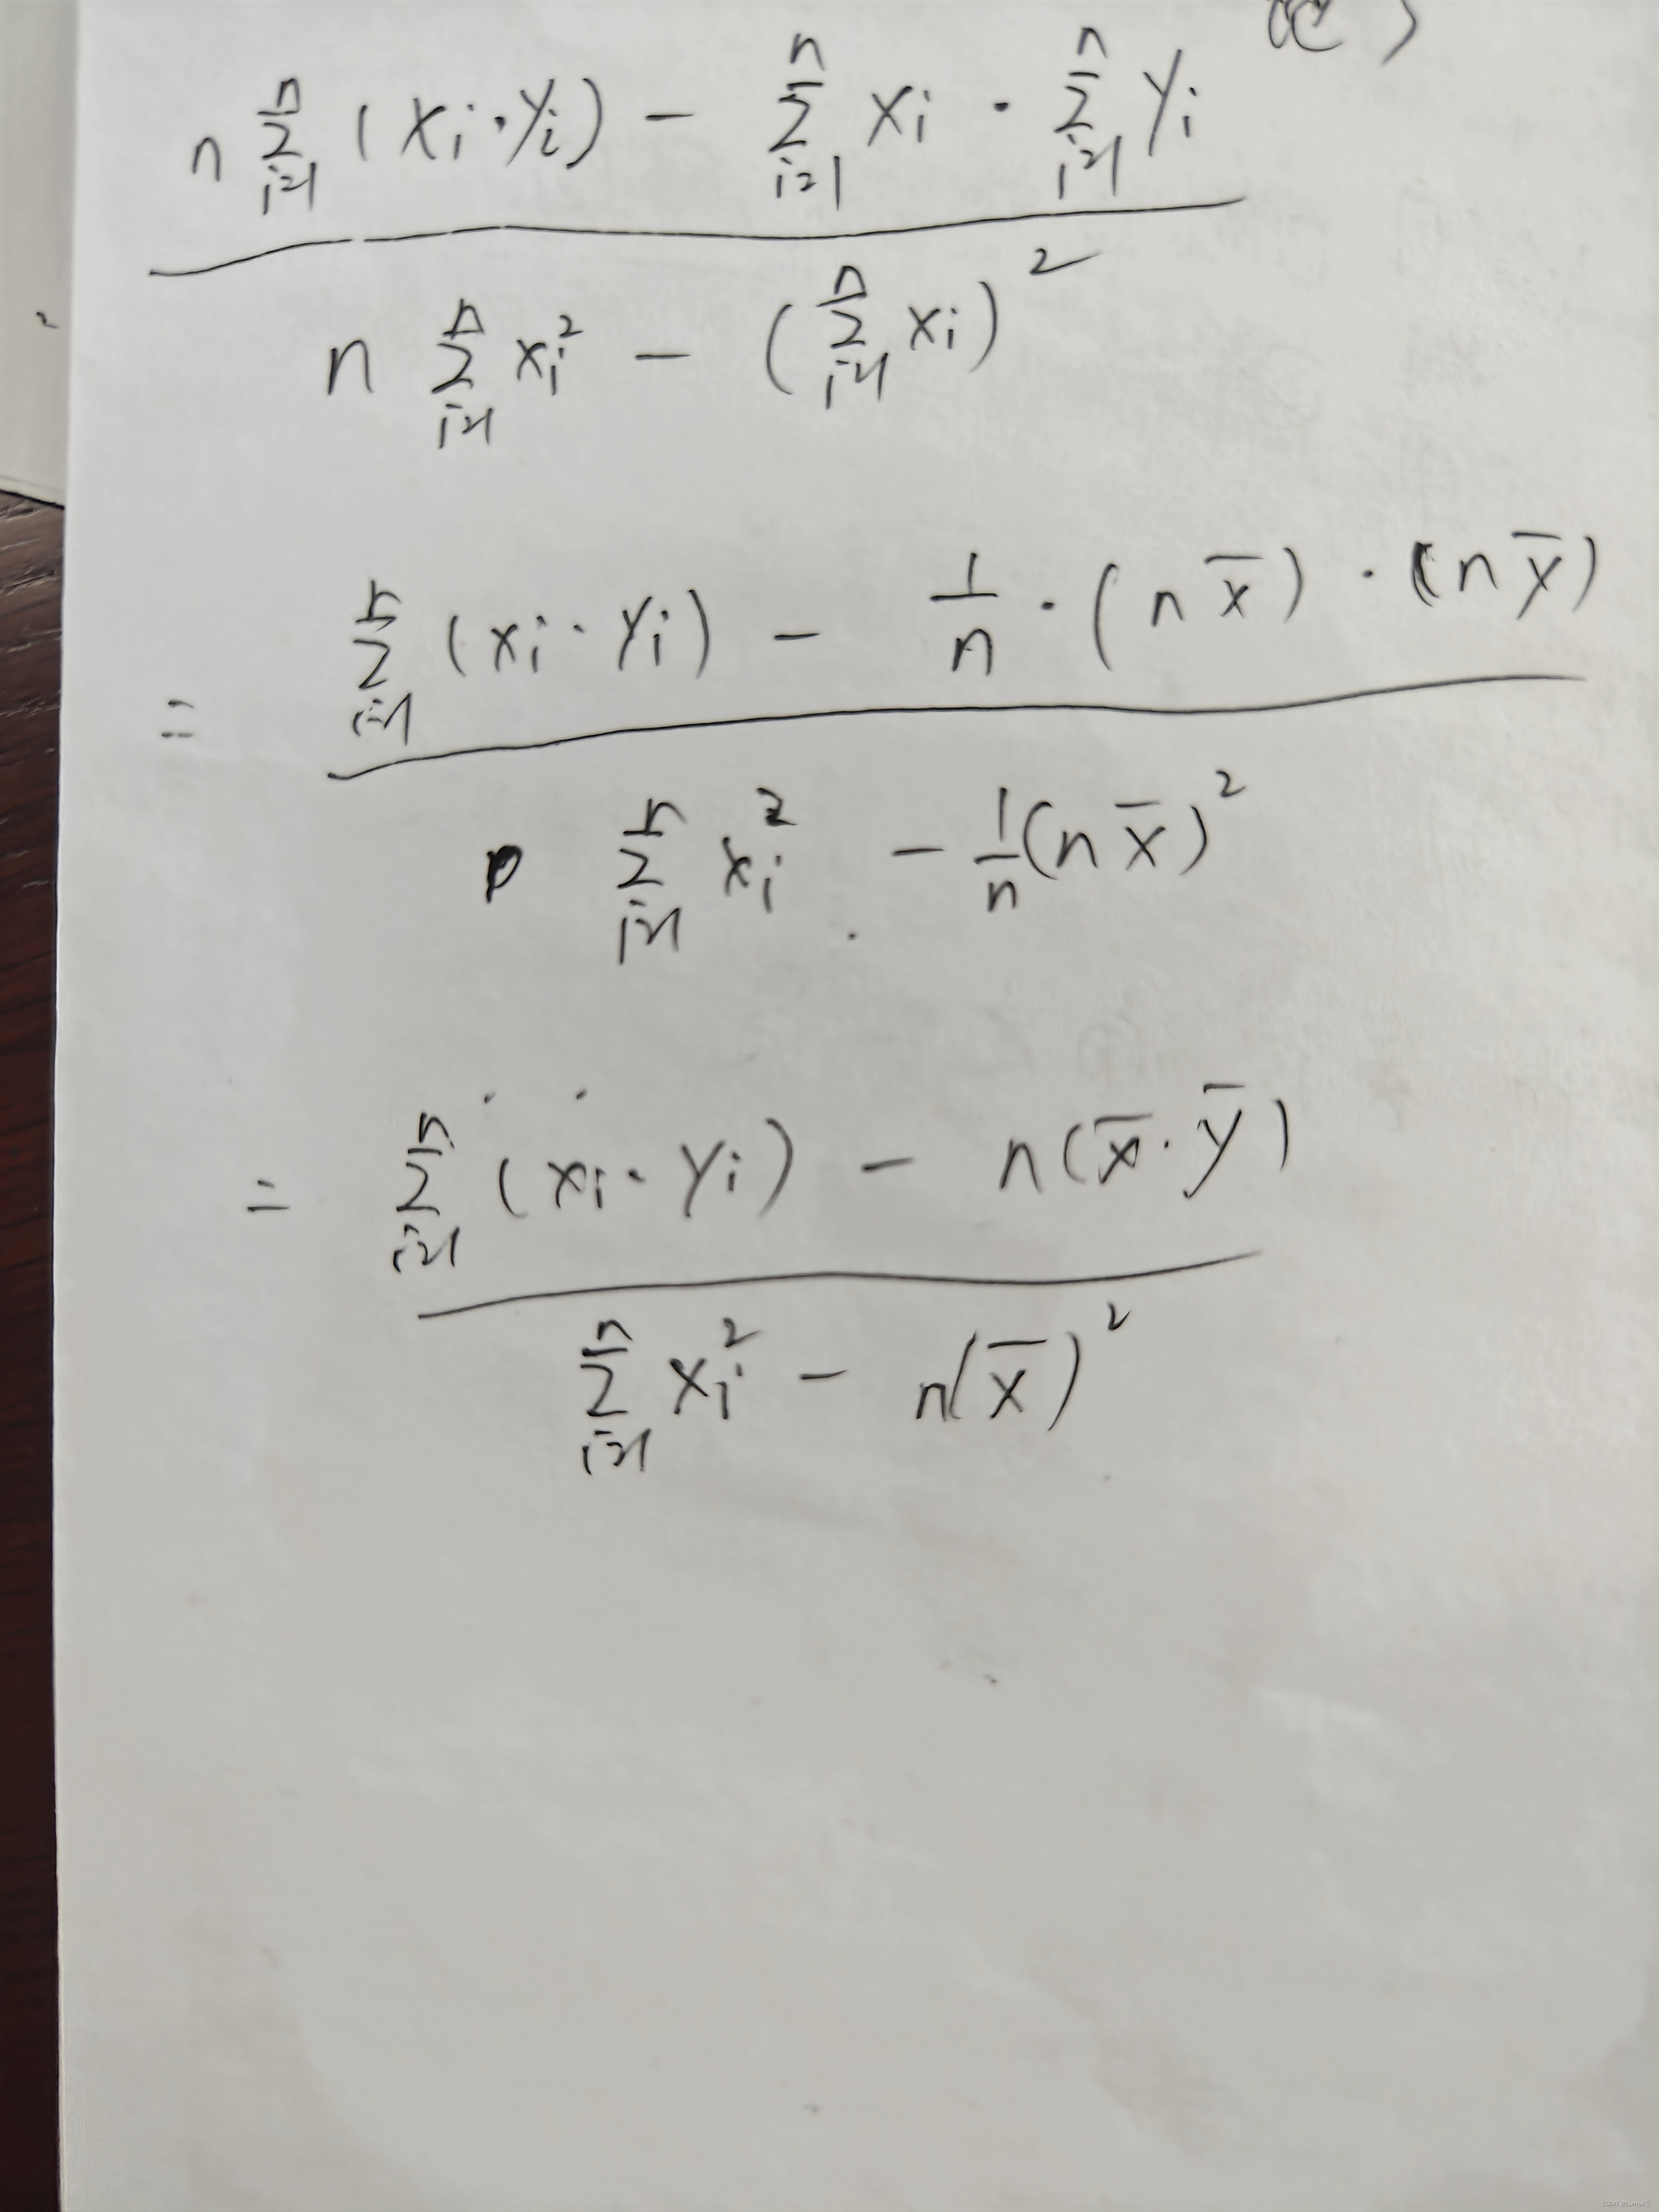 \frac{n \sum_{i=1}^{n} (x_i \cdot y_i) - \sum_{i=1}^{n} x_i \cdot \sum_{i=1}^{n} y_i}{n \sum_{i=1}^{n} x_i^2 - (\sum_{i=1}^{n} x_i)^2}
= \frac{\sum_{i=1}^{n} (x_i \cdot y_i) - \frac{1}{n} \cdot (n \bar{x}) \cdot (n \bar{y})}{\sum_{i=1}^{n} x_i^2 - \frac{1}{n} (n \bar{x})^2}
= \frac{\sum_{i=1}^{n} (x_i \cdot y_i) - n(\bar{x} \cdot \bar{y})}{\sum_{i=1}^{n} x_i^2 - n(\bar{x})^2}